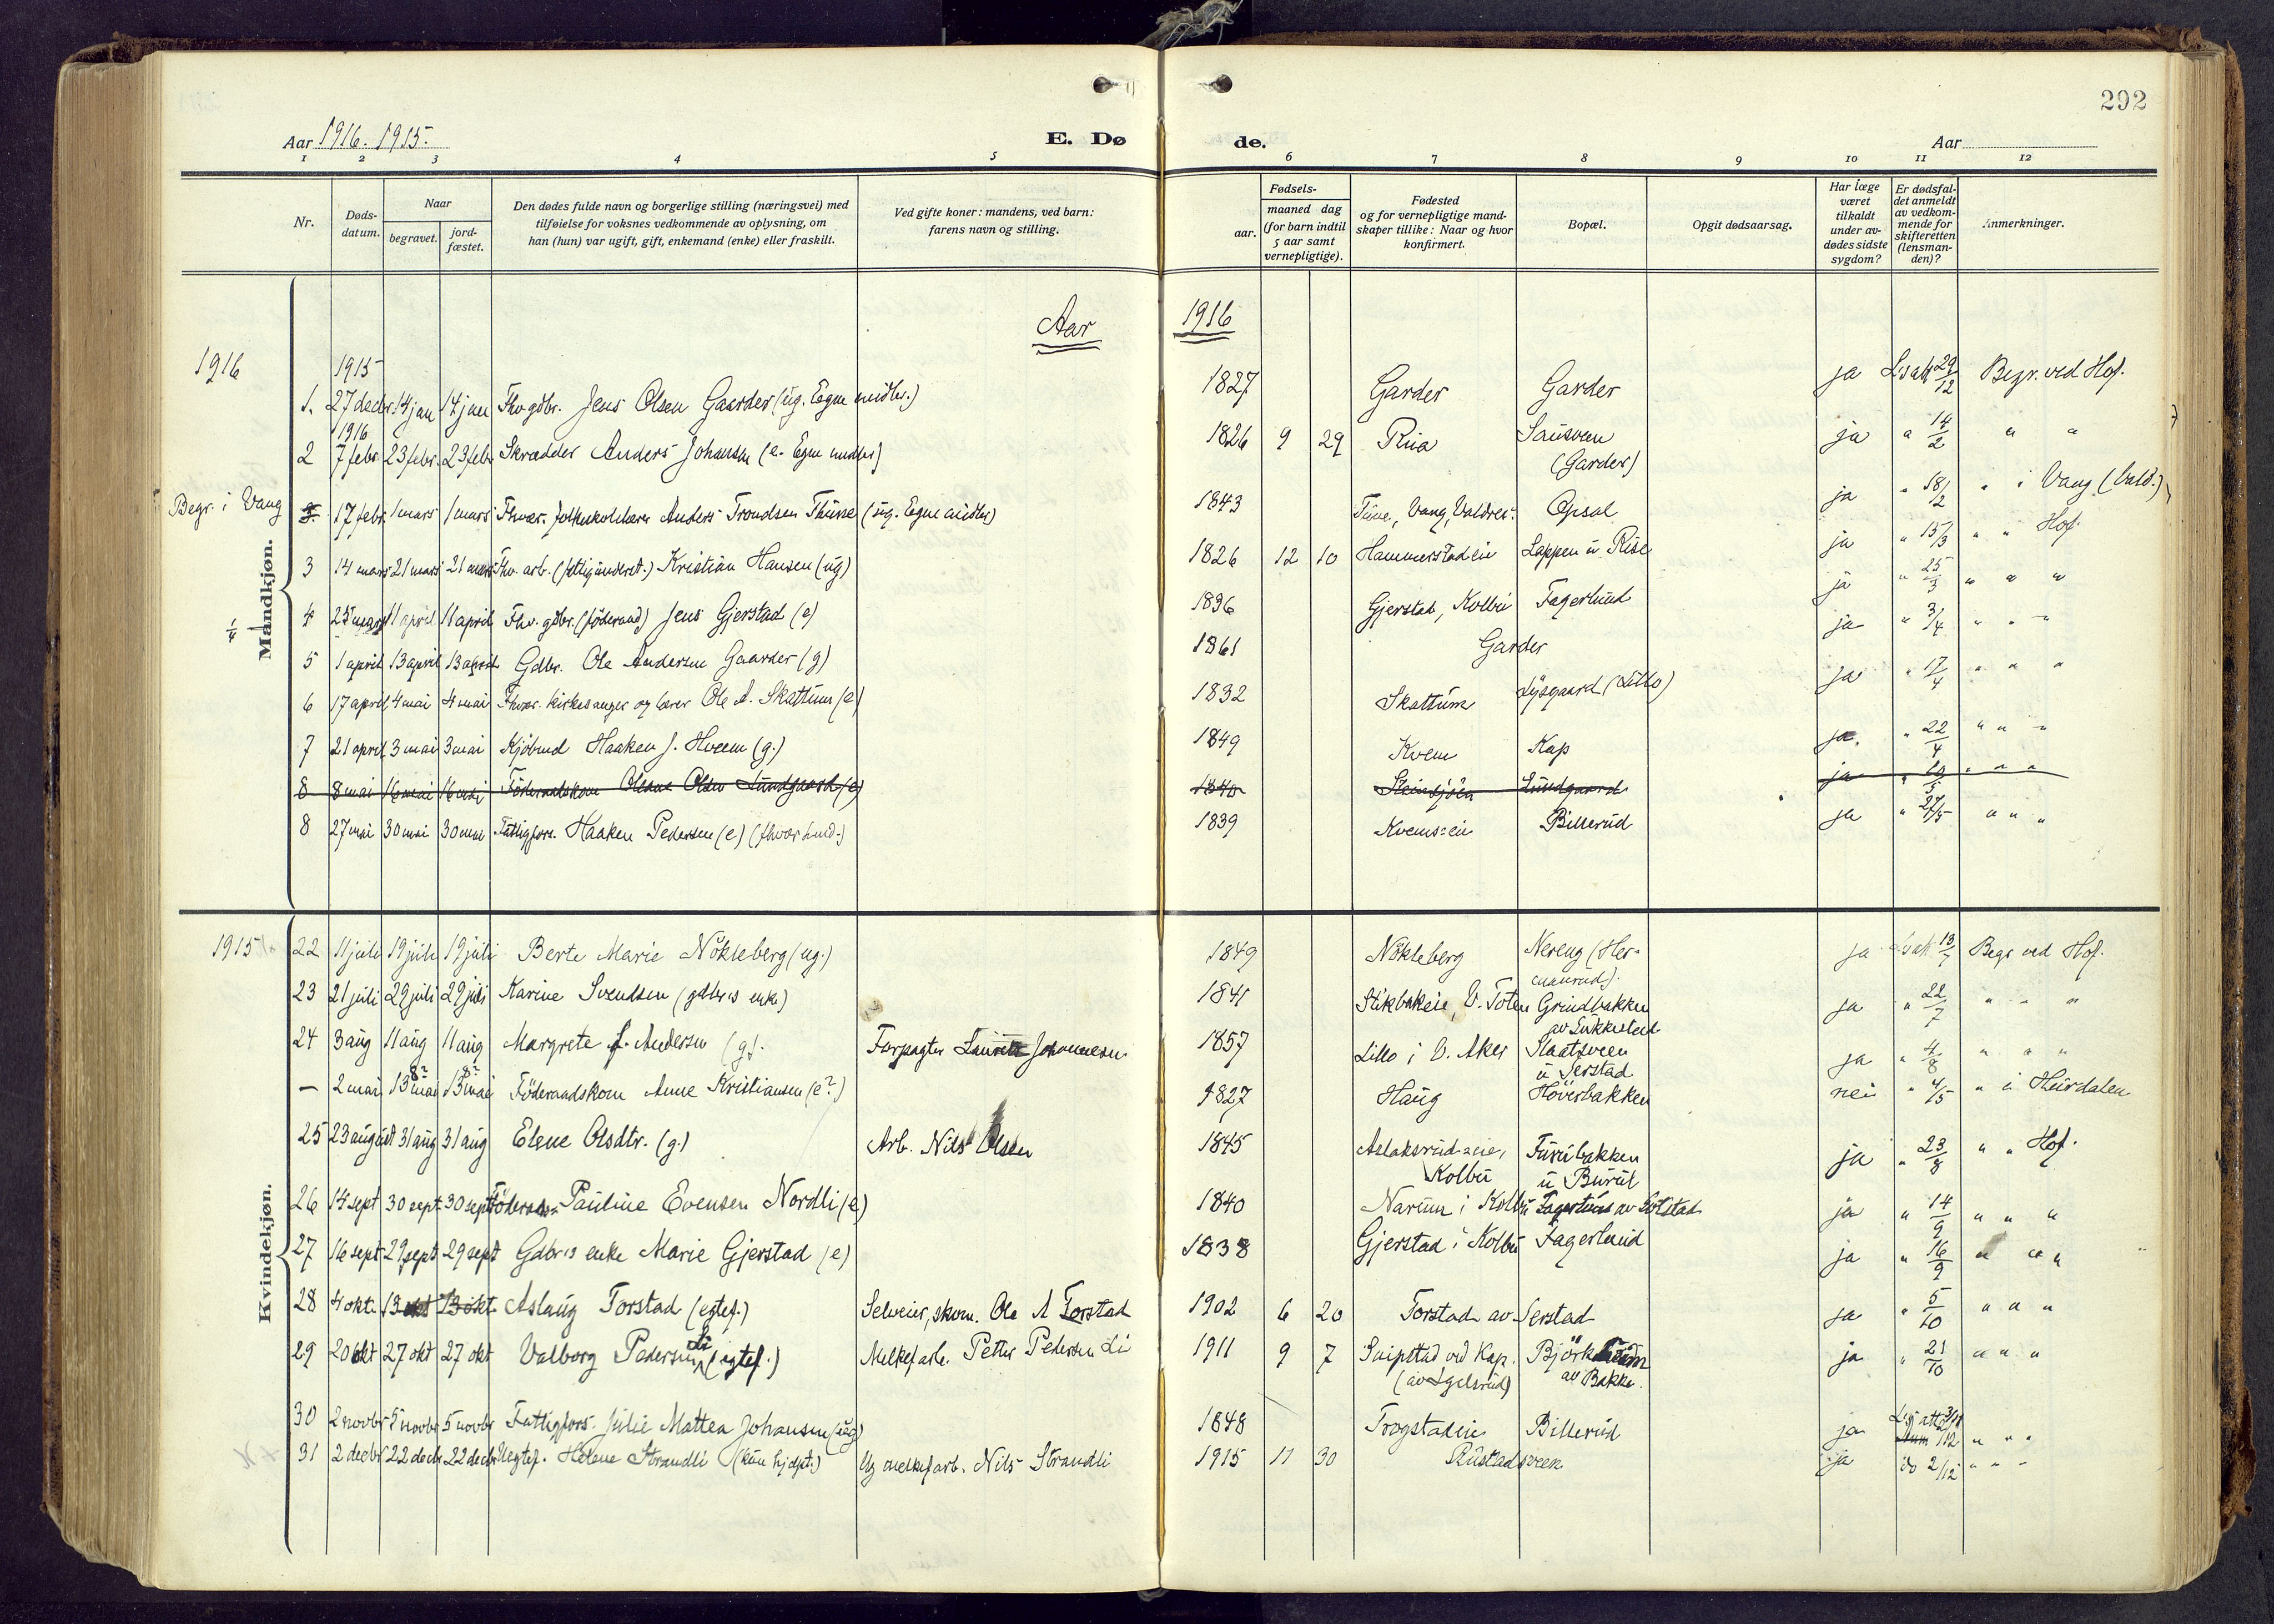 292
Aar 1916. 1915.
E. Dø
de.
Aar
1 2 3 4 5 6 7 8 9 10 11 12
Nr.
Døds-
datum.
Naar
begravet.
jord-
fæstet.
Den dødes fulde navn og borgerlige stilling (næringsvei) med
tilføielse for voksnes vedkommende av oplysning, om
han (hun) var ugift, gift, enkemand (enke) eller fraskilt.
Ved gifte koner: mandens, ved barn:
farens navn og stilling.
Fødsels-
aar.
maaned dag
(for barn indtil
5 aar samt
vernepligtige).
Fødested
og for vernepligtige mand-
skaper tillike: Naar og hvor
konfirmert.
Bopæl.
Opgit dødsaarsag.
Har læge
været
tilkaldt
under av-
dødes sidste
sygdom?
Er dødsfal-
det anmeldt
av vedkom-
mende for
skifteretten
(lensman-
den)?
Anmerkninger.
Aar 1916
1916
Mandkjøn.
1915
1. 27 decbr. 14 jan 14 jan Fhv gdbr. Jens Olsen Gaarder (ug. Egne midler.) 1827 Garder Garder ja 29/12 Begr. ved Hof.
1916
2 7 febr. 23 febr. 23 febr. Skrædder Anders Johansen (e. Egne midler) 1826 9 29 Rua Sausveen (Garder) ja " 14/2 " "
Begr. i Vang 3. 17 febr. 1 mars 1 mars Fhvær. folkeskolelærer Anders Trondsen Thune (ug. Egne midler) 1843 Tune, Vang, Valdres. Opsal ja " 18/2 " i Vang (Vald.)
3 14 mars 21 mars 21 mars Fhv. arb. (fattigunderst.) Kristian Hansen (ug) 1826 12 10 Hammerstadeie Lappen u Rise ja " 15/3 " " Hof.
4 25 mars 11 april 11 april Fhv. gdbr. (föderaad) Jens Gjerstad (e) 1836 Gjerstad, Kolbu Fagerlund ja " 25/3 " " "
5 1 april 13 april 13 april Gdbr. Ole Andersen Gaarder (g) 1861 Garder ja " 3/4 " " "
6 17 april 4 mai 4 mai Fhvær. kirkesanger og lærer Ole A. Skattum (e) 1832 Skattum Lysgaard (Lillo) ja " 17/4 " " "
7 21 april 3 mai 3 mai Kjöbmd Haaken J. Hveem (g.) 1849 Kvem Kap ja. " 22/4 " " "
8 8 mai 16 mai 16 mai Föderaadskone Oleane Olsen Lundgaard (e) 1840 Steinsjöen Lundgaard ja " 10/5 " " "
8 27 mai 30 mai 30 mai Fattigfors. Haaken Pedersen (e) 1839 Kvemseie Billerud ja " 27/5 " " "
1915
Kvindekjøn.
22 11 juli 19 juli 19 juli Berte Marie Nökleberg (ug.) 1849 Nökleberg Nereng (Her-manrud). ja 13/7 Begr ved Hof.
23 21 juli 29 juli 29 juli Karine Svendsen (gdbr.s enke) 1841 Stikbakeie, V. Toten Grindbakken av Lukkestad ja " 22/7 " " "
24 3 aug 11 aug 11 aug Margrete J. Andersen (g). Forpagter Laurits Johannesen 1857 Lillo i V. Aker Slaatsveen u Jerstad ja " 4/8 " " "
— 2 mai 13 mai 8? 13 mai 8? Föderaadskone Anne Kristiansen (e?) 1827 Haug Höversbakken nei " 4/5 " i Heirdalen
25 23 august 31 aug 31 aug Elene Olsdtr. (g.) Arb. Nils Olsen 1845 Aslaksrudseie, Kolbu Furubakken u Burul ja " 23/8 " " Hof.
26 14 sept 30 sept 30 sept Pauline Evensen Nordli (e) 1840 Narum i Kolbu Fagertun av Solstad ja " 14/9 " " "
27 16 sept 29 sept 29 sept Gdbr.s enke Marie Gjerstad (e) 1838 Gjerstad i Kolbu Fagerlund ja " 16/9 " " "
28 4 okt. 13 okt 13 okt Aslaug Torstad (egtef.) Selveier, skom. Ole A Torstad 1902 6 20 Torstad av Jerstad ja " 5/10 " " "
29 20 okt 27 okt 27 okt Valborg Pedersen Li (egtef.) Melkef.arb. Petter Pedersen Li 1911 9 7 Snipstad ved Kap. (av Egelsrud) av Bakke. ja " 21/10 " " "
30 2 novbr 5 novbr 5 novbr Fattigfors. Julie Mattea Johansen (ug) 1848 Trogstadeie Billerud ja " " "
31 2 decbr 22 decbr 22 decbr Uegtef. Helene Strandli (kun hjdpt.) Ug melkef.arb. Nils Strandli 1915 11 30 Rustadsveen ja do 2/12 " " "